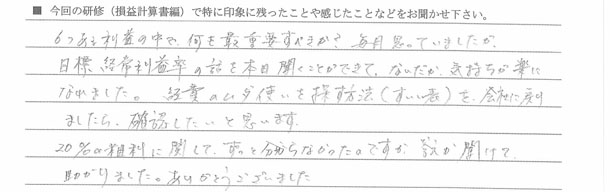 ■ 今回の研修（損益計算書編）で特に印象に残ったことや感じたことなどをお聞かせ下さい。
6つある利益の中で、何を最重要すべきか？毎月思っていましたが、
目標、経常利益率の話を本日聞くことができて、なんだか、気持ちが楽に
なれました。 経費のムダ使いを探す方法（すいい表）を、会社に戻り
ましたら、確認したいと思います。
20%の粗利に関して、ずっと分からなかったのですが、答えが聞けて、
助かりました。ありがとうございました